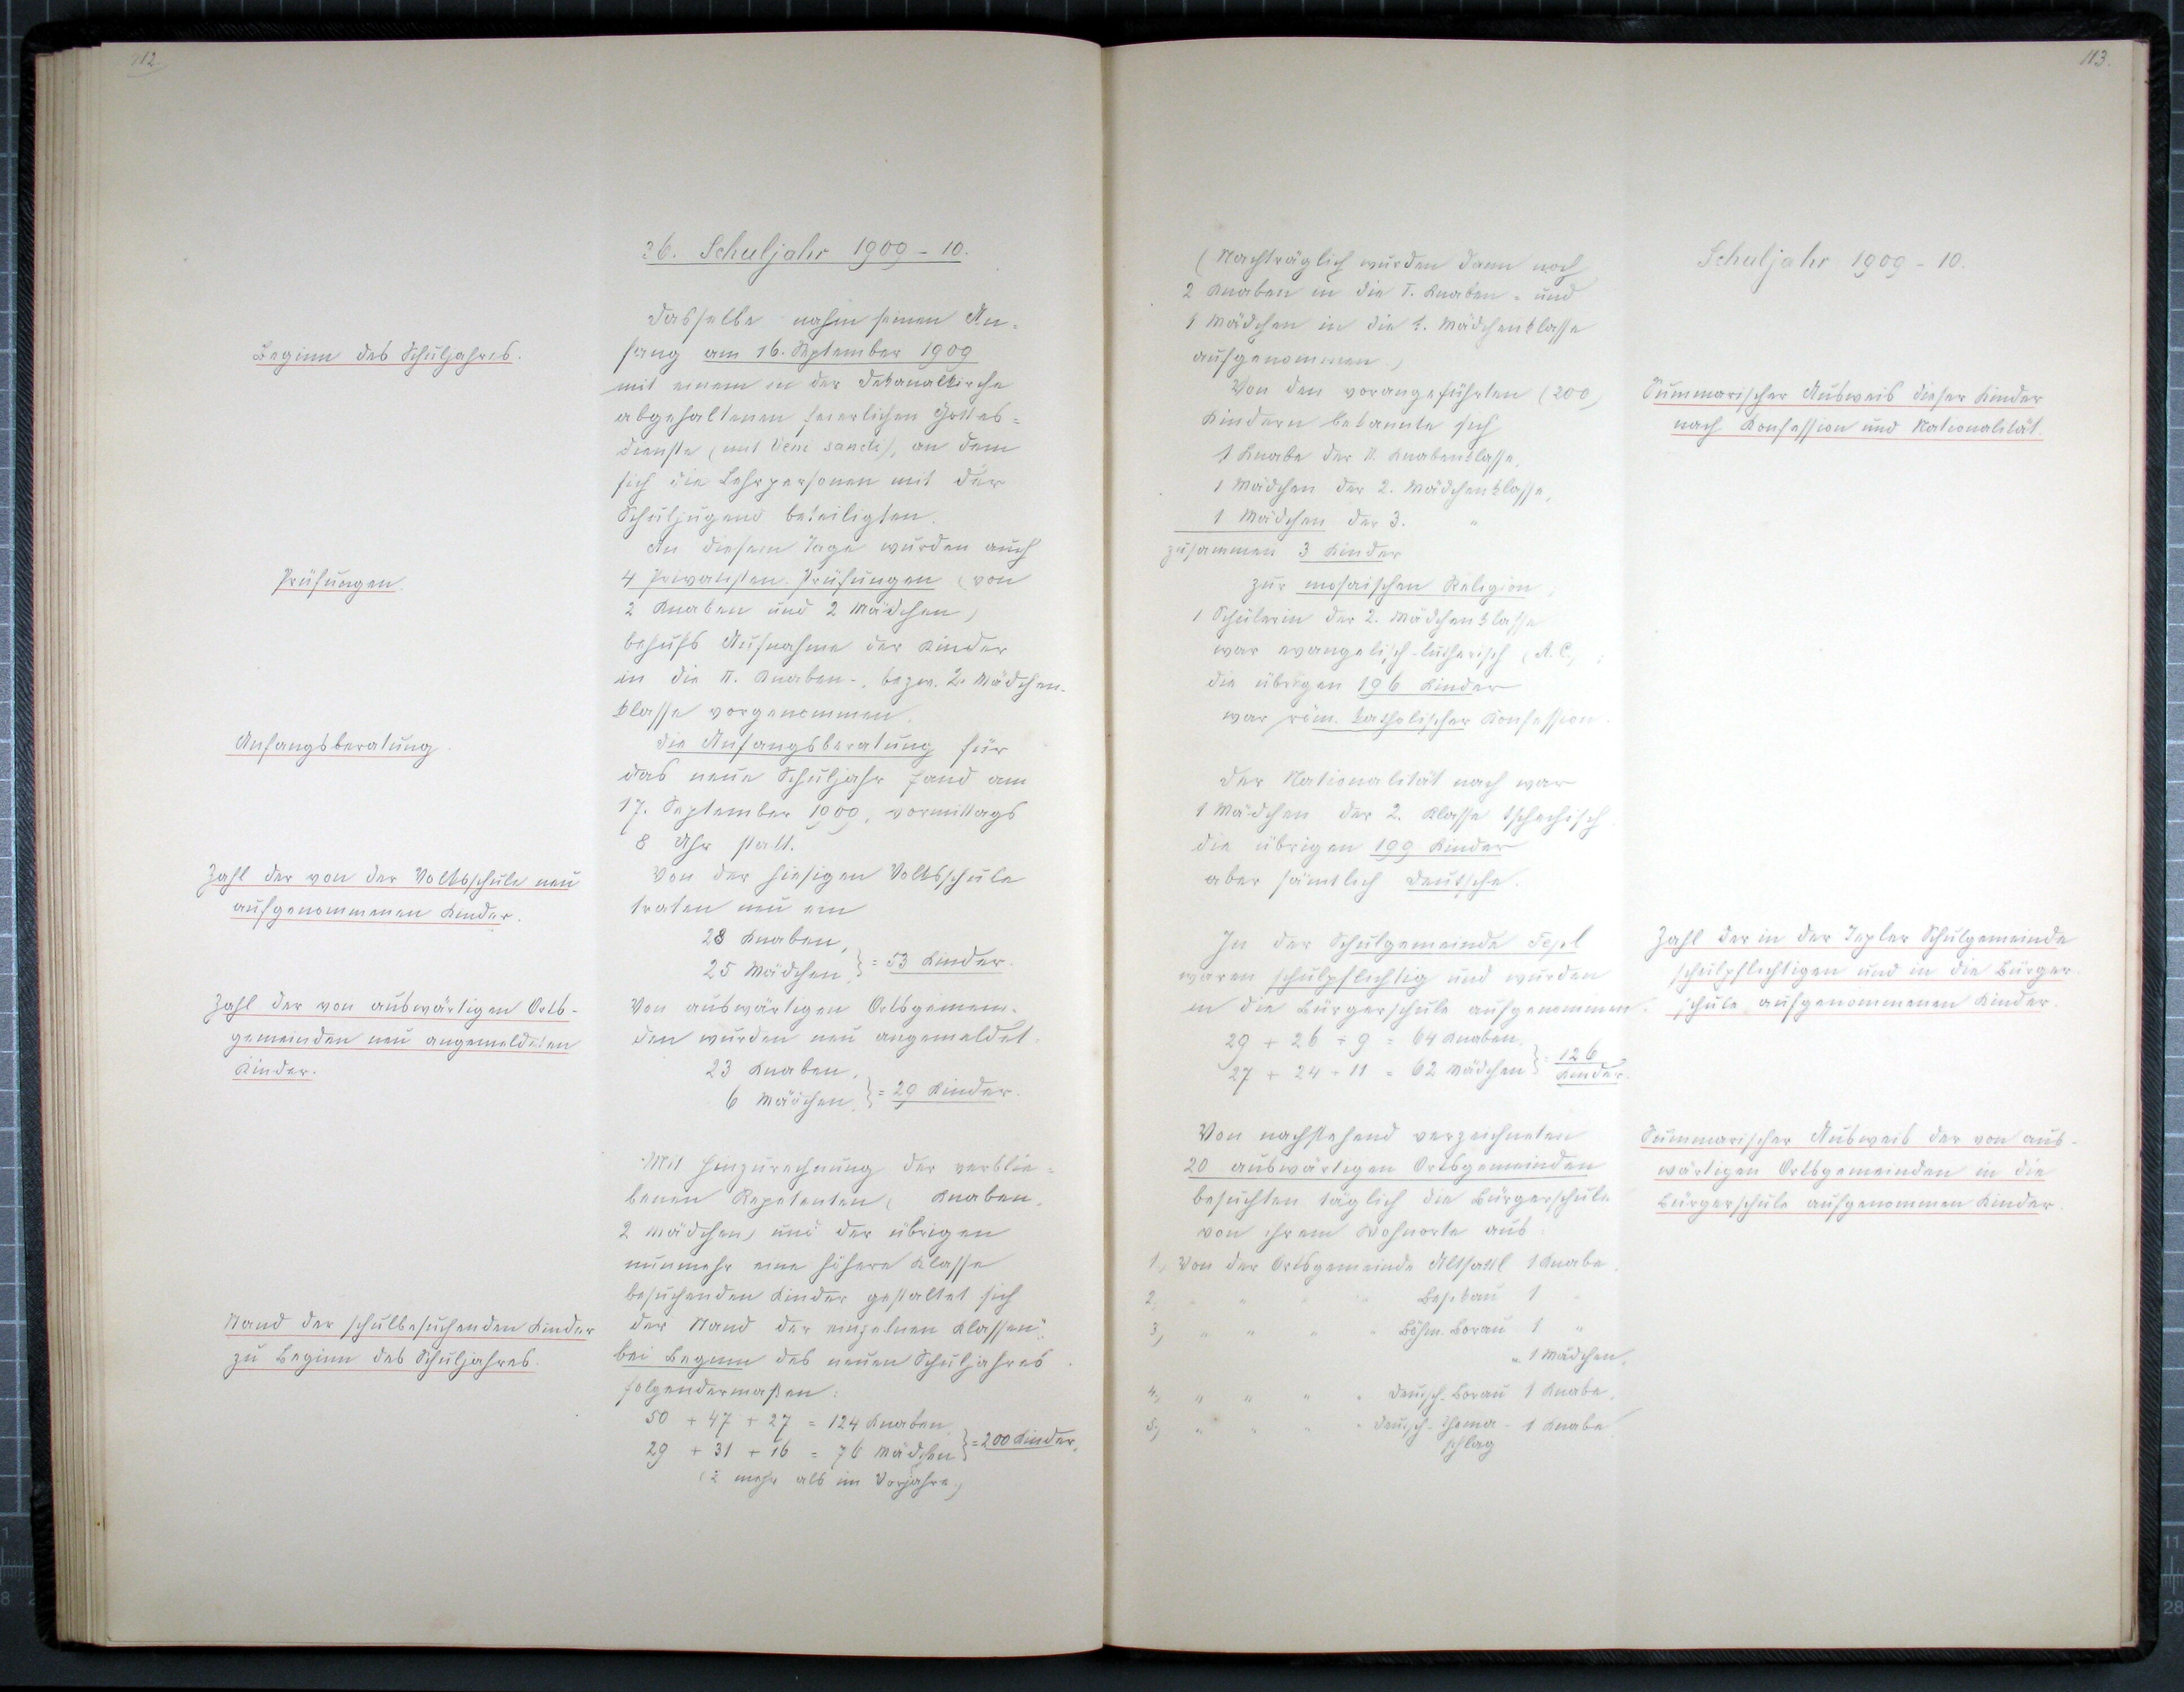 112.
26. Schuljahr 1909 - 10.
Beginn des Schuljahres.
Dasselbe nahm seinen An=
fang am 16. September 1909
mit einem in der Dekanalkirche
abgehaltenen feierlichen Gottes=
dienste (mit Veni sancti), an dem
sich die Lehrpersonen mit der
Schuljugend beteiligten.
Prüfungen.
An diesem Tage wurden auch
4 Privatisten-Prüfungen (von
2 Knaben und 2 Mädchen)
behufs Aufnahme der Kinder
in die II. Knaben-, bezw. 2. Mädchen-
klasse vorgenommen.
Anfangsberatung.
Die Anfangsberatung für
das neue Schuljahr fand am
17. September 1909, vormittags
8 Uhr statt.
Zahl der von der Volksschule neu
aufgenommenen Kinder.
Von der hiesigen Volksschule
traten neu ein
28 Knaben,
25 Mädchen, } = 53 Kinder.
Zahl der von auswärtigen Orts-
gemeinden neu angemeldeten
Kinder.
Von auswärtigen Ortsgemein-
den wurden neu angemeldet.
23 Knaben,
6 Mädchen, } = 29 Kinder.
Mit Hinzurechnung der verblie=
benen Repetenten ( Knaben,
2 Mädchen) und der übrigen
nunmehr eine höhere Klasse
besuchenden Kinder gestaltet sich
Stand der schulbesuchenden Kinder
zu Beginn des Schuljahres.
der Stand der einzelnen Klassen
bei Beginn des neuen Schuljahres
folgendermaßen:
50 + 47 + 27 = 124 Knaben
29 + 31 + 16 = 76 Mädchen } = 200 Kinder.
(2 mehr als im Vorjahre.)
113.
Schuljahr 1909 - 10.
(Nachträglich wurden dann noch
2 Knaben in die I. Knaben- und
1 Mädchen in die 1. Mädchenklasse
aufgenommen.)
Summarischer Ausweis dieser Kinder
nach Konfession und Nationalität.
Von den vorangeführten (200)
Kindern bekannte sich
1 Knabe der II. Knabenklasse,
1 Mädchen der 2. Mädchenklasse,
1 Mädchen der 3. "
zusammen 3 Kinder
zur mosaischen Religion,
1 Schülerin der 2. Mädchenklasse
war evangelisch-lutherisch (A. C.);
die übrigen 196 Kinder
war röm. katholischer Konfession.
Der Nationalität nach war
1 Mädchen der 2. Klasse tschechisch
die übrigen 199 Kinder
aber sämtlich Deutsche.
Zahl der in der Tepler Schulgemeinde
schulpflichtigen und in die Bürger-
schule aufgenommenen Kinder.
In der Schulgemeinde Tepl
waren schulpflichtig und wurden
in die Bürgerschule aufgenommen.
29 + 26 + 9 = 64 Knaben
27 + 24 + 11 = 62 Mädchen } = 126 Kinder.
Summarischer Ausweis der von aus-
wärtigen Ortsgemeinden in die
Bürgerschule aufgenommen Kinder.
Von nachstehend verzeichneten
20 auswärtigen Ortsgemeinden
besuchten täglich die Bürgerschule
von ihrem Wohnorte aus:
1, Von der Ortsgemeinde Altsattl 1 Knabe,
2, " " " " Beschau 1 "
3, " " " " Böhm. Borau 1 "
" 1 Mädchen,
4, " " " " Deutsch-Borau 1 Knabe,
5, " " " " Deutsch-Thoma- 1 Knabe
schlag